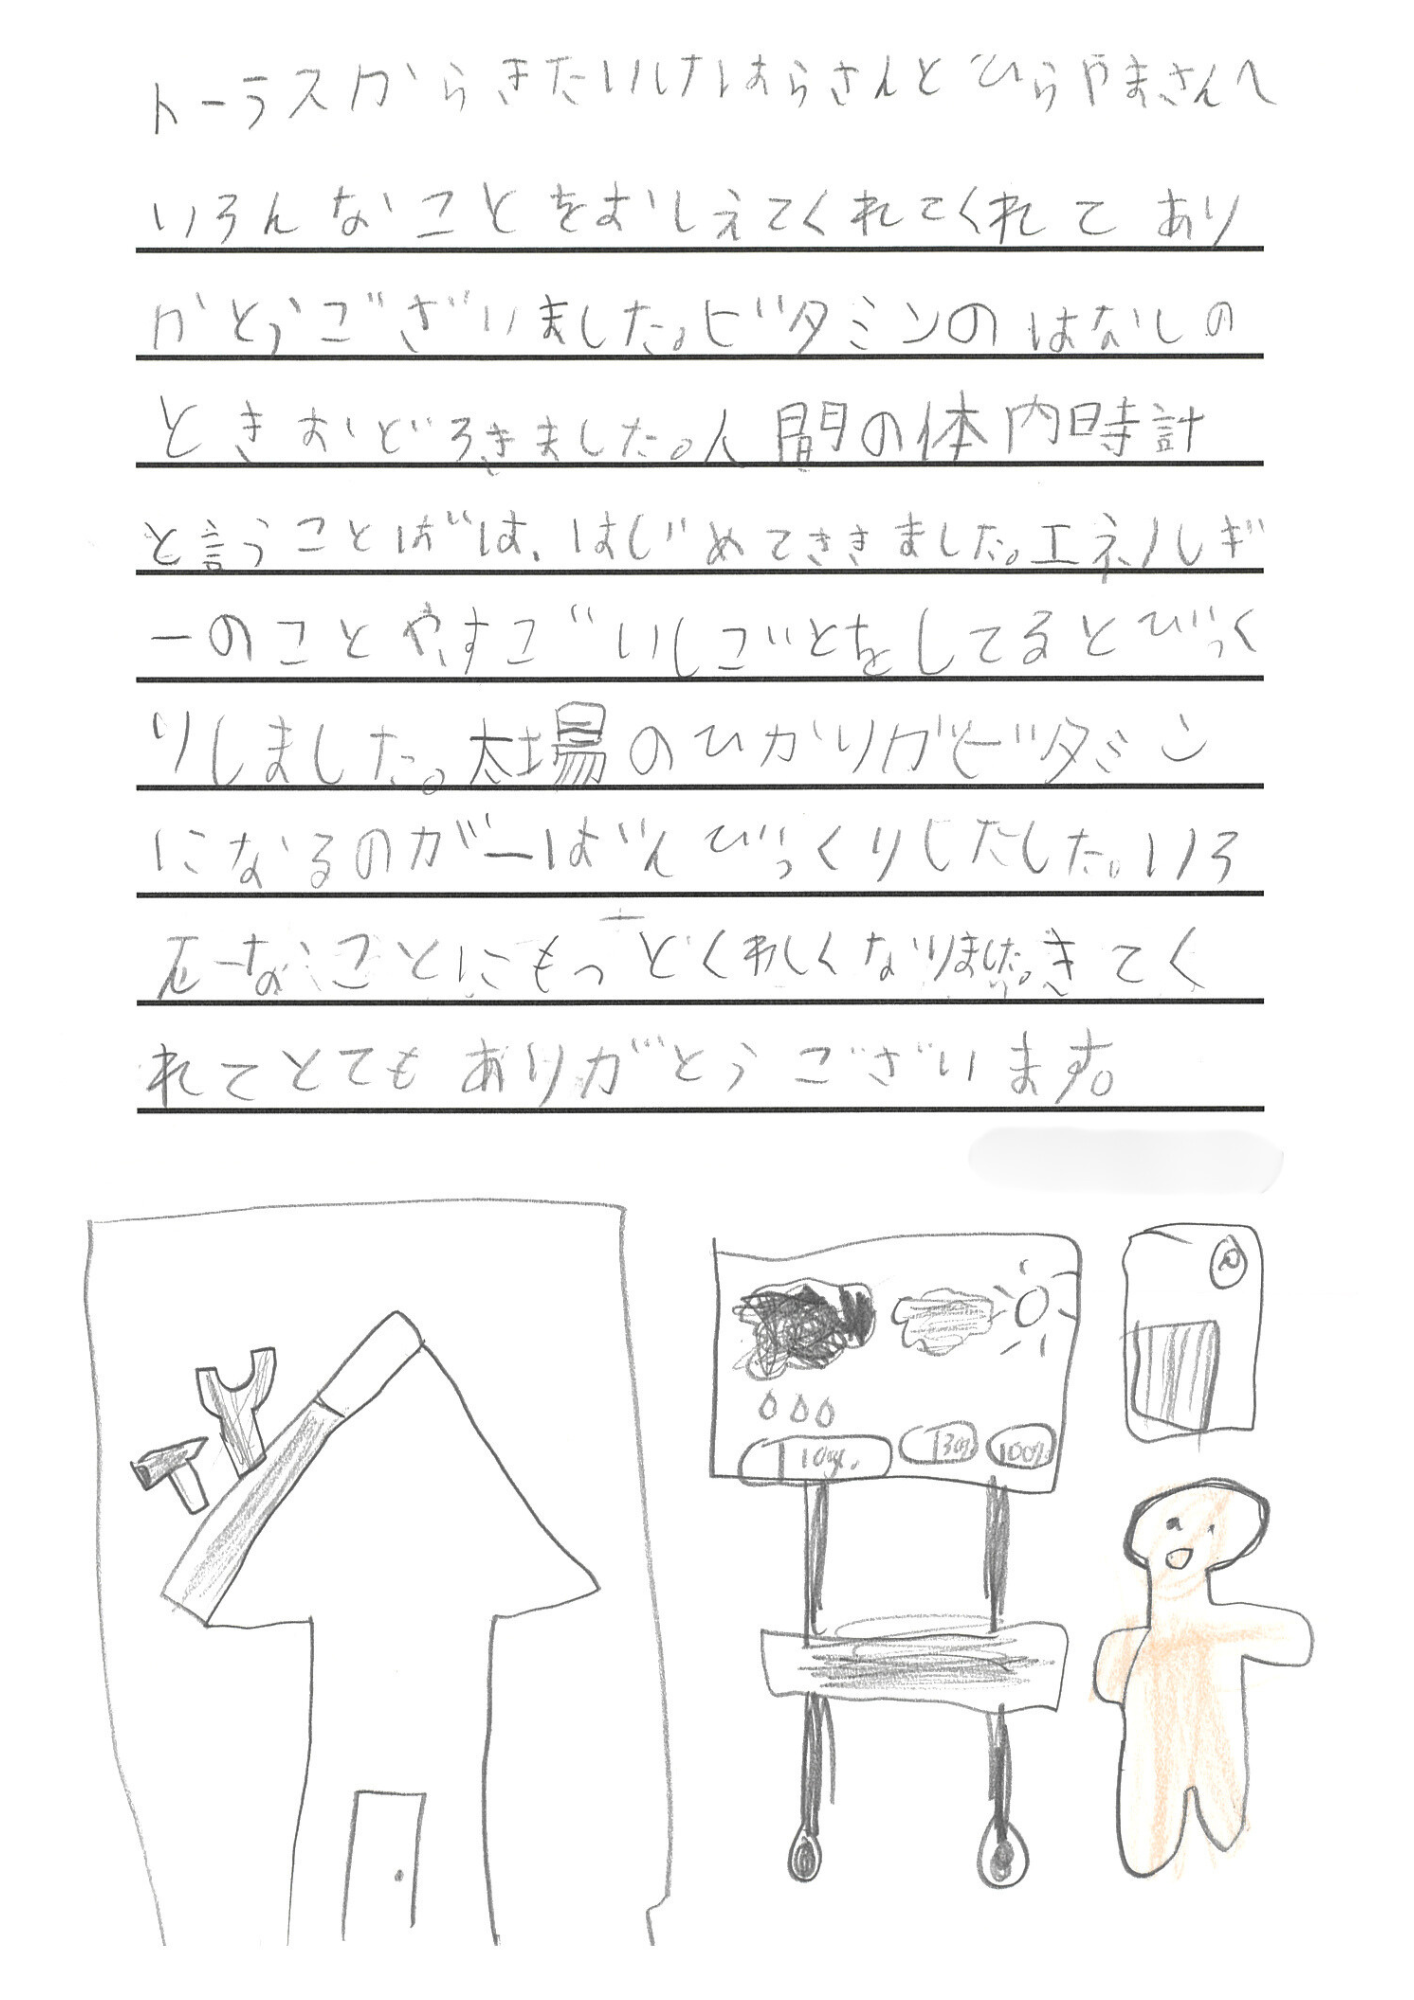 トーラスからきたいけはらさんとひらやまさんへ
いろんなことをおしえてくれてくれてあり
がとうございました。ビタミンのはなしの
ときおどろきました。人間の体内時計
と言うことばは、はじめてききました。エネルギ
ーのことやすごいしごとをしてるとびっく
りしました。太場のひかりがビタミン
になるのが一ばんびっくりしたした。いろ
んなことにもっとくわしくなりました。きてく
れてとてもありがとうございます。
10%
30%
100%